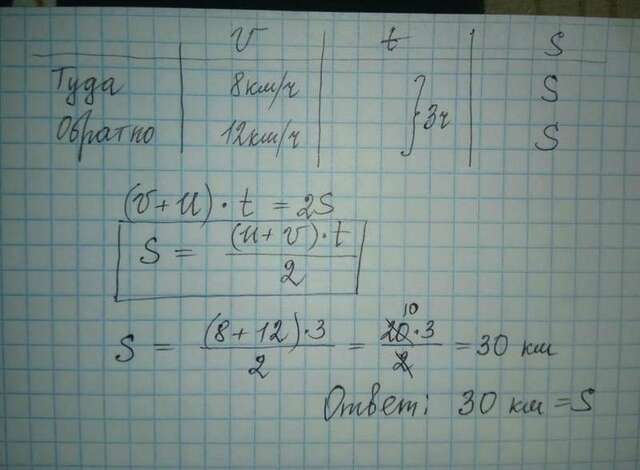 v t S
Туда 8км/ч S
} 3ч
Обратно 12км/ч S
(v+u)·t = 2S
S = (u+v)·t / 2
S = (8+12)·3 / 2 = 20·3 / 2 = 30 км
10
Ответ: 30 км = S